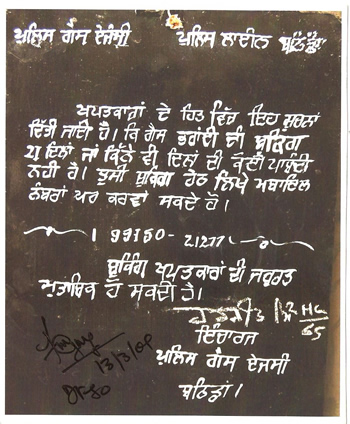 ਪੁਲਿਸ ਗੈਸ ਏਜੰਸੀ ਪੁਲਿਸ ਲਾਈਨ ਬਠਿੰਡਾ
ਖਪਤਕਾਰਾਂ ਦੇ ਹਿਤ ਵਿੱਚ ਇਹ ਸੂਚਨਾ
ਦਿੱਤੀ ਜਾਂਦੀ ਹੈ। ਕਿ ਗੈਸ ਭਰਾਂਦੀ ਦੀ ਬੁਕਿੰਗ
21 ਦਿਨਾਂ ਜਾਂ ਕਿੰਨੇ ਵੀ ਦਿਨਾਂ ਦੀ ਕੋਈ ਪਾਬੰਦੀ
ਨਹੀ ਹੈ। ਤੁਸੀ ਬੁਕਿੰਗ ਹੇਠ ਲਿਖੇ ਮੋਬਾਇਲ
ਨੰਬਰਾਂ ਪਰ ਕਰਵਾ ਸਕਦੇ ਹੋ।
99150-21277
ਬੁਕਿੰਗ ਖਪਤਕਾਰਾਂ ਦੀ ਜਰੂਰਤ
ਮੁਤਾਬਿਕ ਹੋ ਸਕਦੀ ਹੈ।
HC
65
ਇੰਚਾਰਜ
ਪੁਲਿਸ ਗੈਸ ਏਜੰਸੀ
ਬਠਿੰਡਾ।